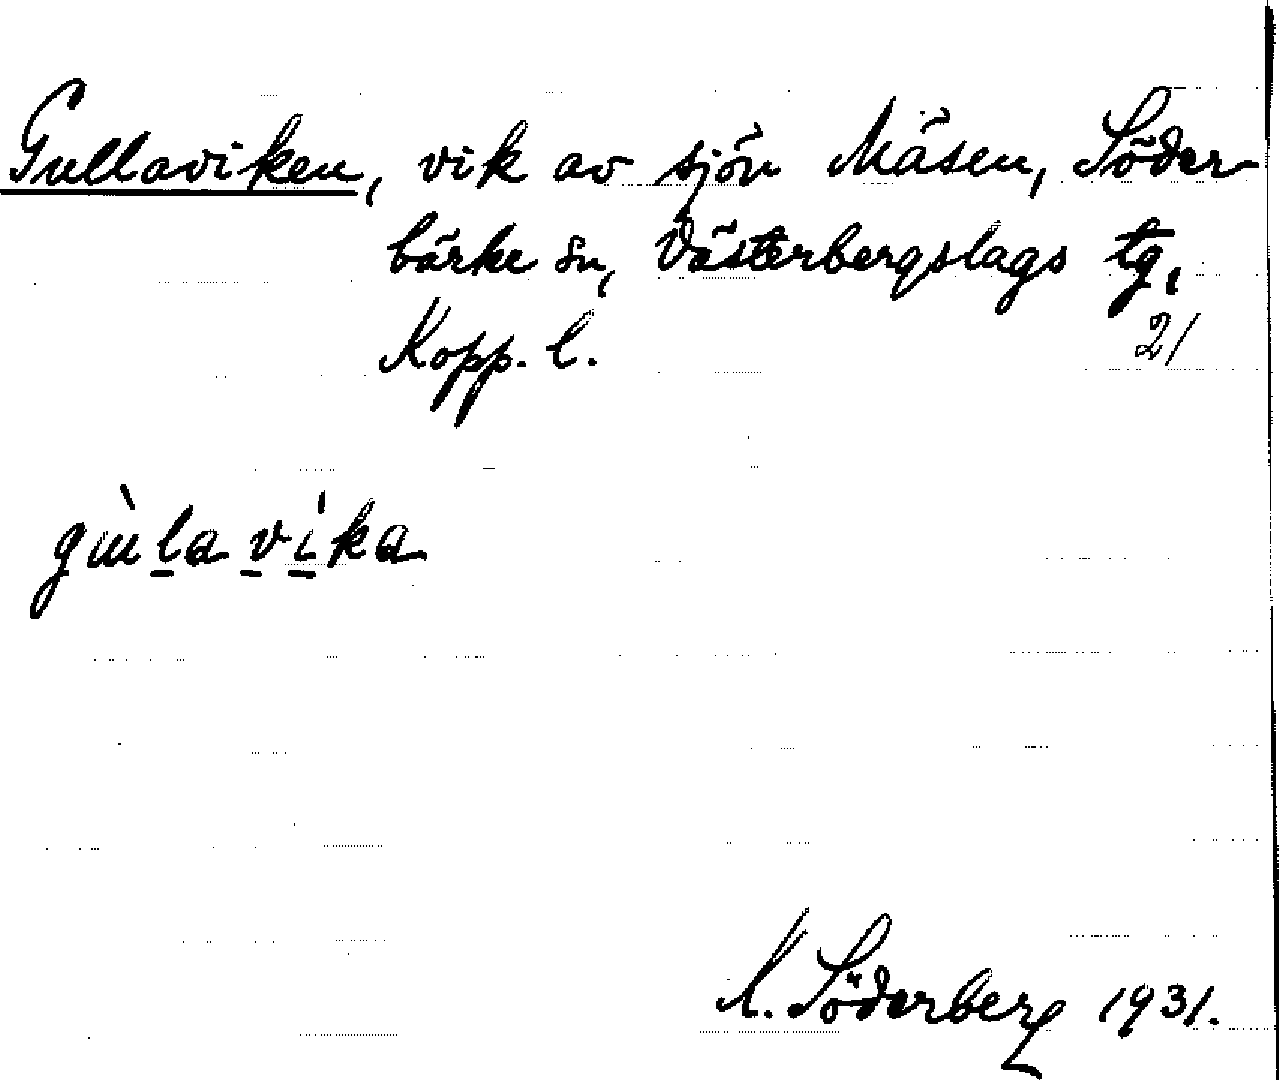 Gullaviken, vik av sjön Mäsen, Söder
bärke sn, Västerbergslags tg,
Kopp. l. 21
K. Söderberg 1931.